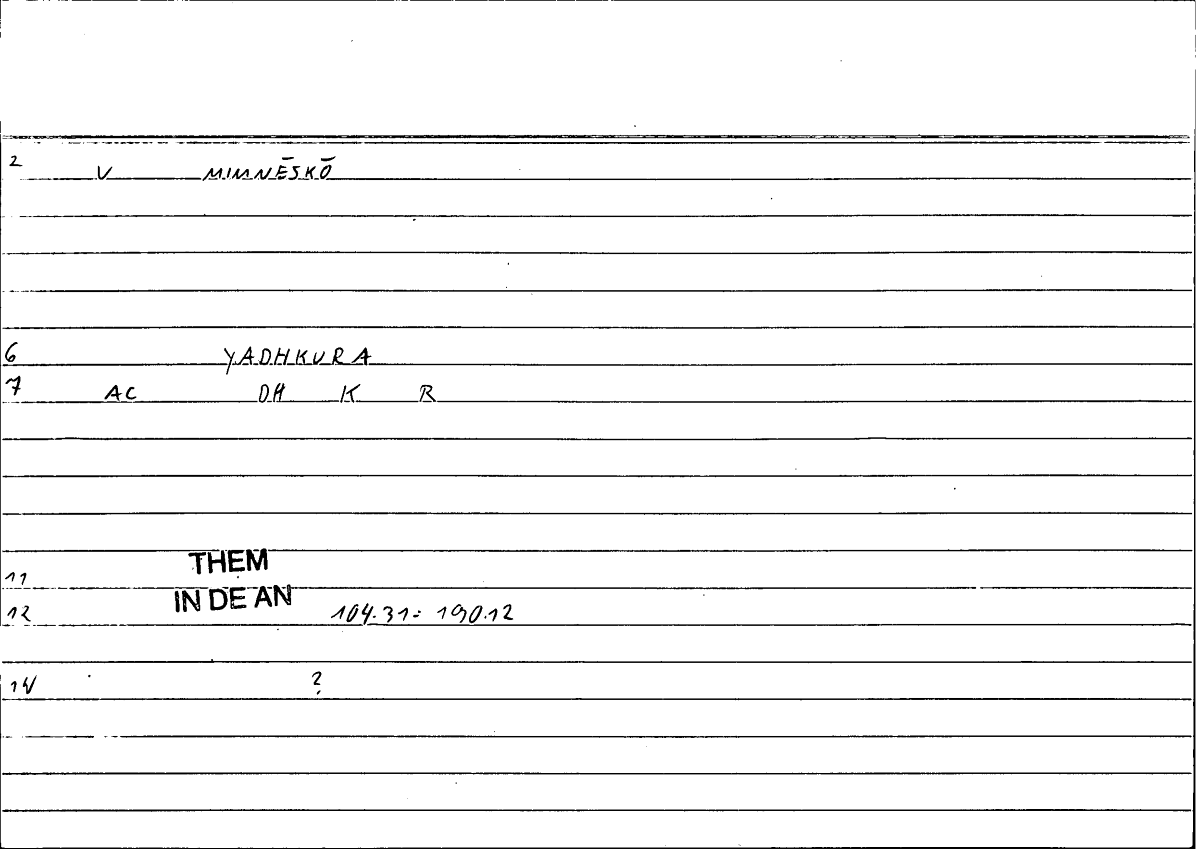 2 V MIMNĒSKŌ
6 YADHKURA
7 AC DH K R
11 THEM
12 IN DE AN 104.31 = 190.12
14 ?